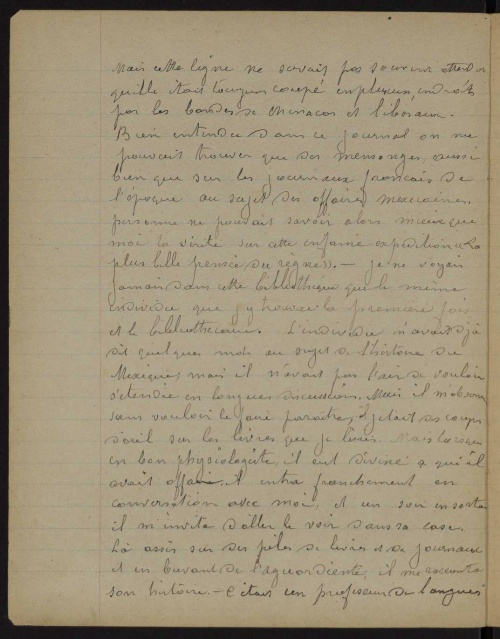 Mais cette ligne ne servait pas souvent attendu
qu'elle était toujours coupé en plusieurs endroits
par les bandes de chinacos et liberaux.
Bien entendu dans ce journal on ne
pouvait trouver que des mensonges, aussi
bien que sur les journaux francais de
l'époque au sujet des affaires mexicaines.
personne ne pouvait savoir alors mieux que
moi la vérité sur cette infame expédition (la
plus belle pensée du règne). — Je ne voyais
jamais dans cette bibliothèque que le même
individu que j'y trouvai la première fois
et le bibliothecaire. L'individu m'avait déjà
dit quelques mots au sujet de l'histoire du
Mexique, mais il n'avait pas l'air de vouloir
s'etendre en longues discussions. Mais il m'observait
sans vouloir le faire paraitre, il jetait des coups
d'oeil sur les livres que je lisais. Mais lorsque
en bon physiologiste, il eut deviné a qui il
avait affaire. il entra franchement en
conversation avec moi, et un soir en sortant
il m'invita d'aller le voir dans sa case.
Là assis sur des piles de livres et de journaux
et en buvant de l'aguardiente, il me raconta
son histoire. — C'était un professeur de langues